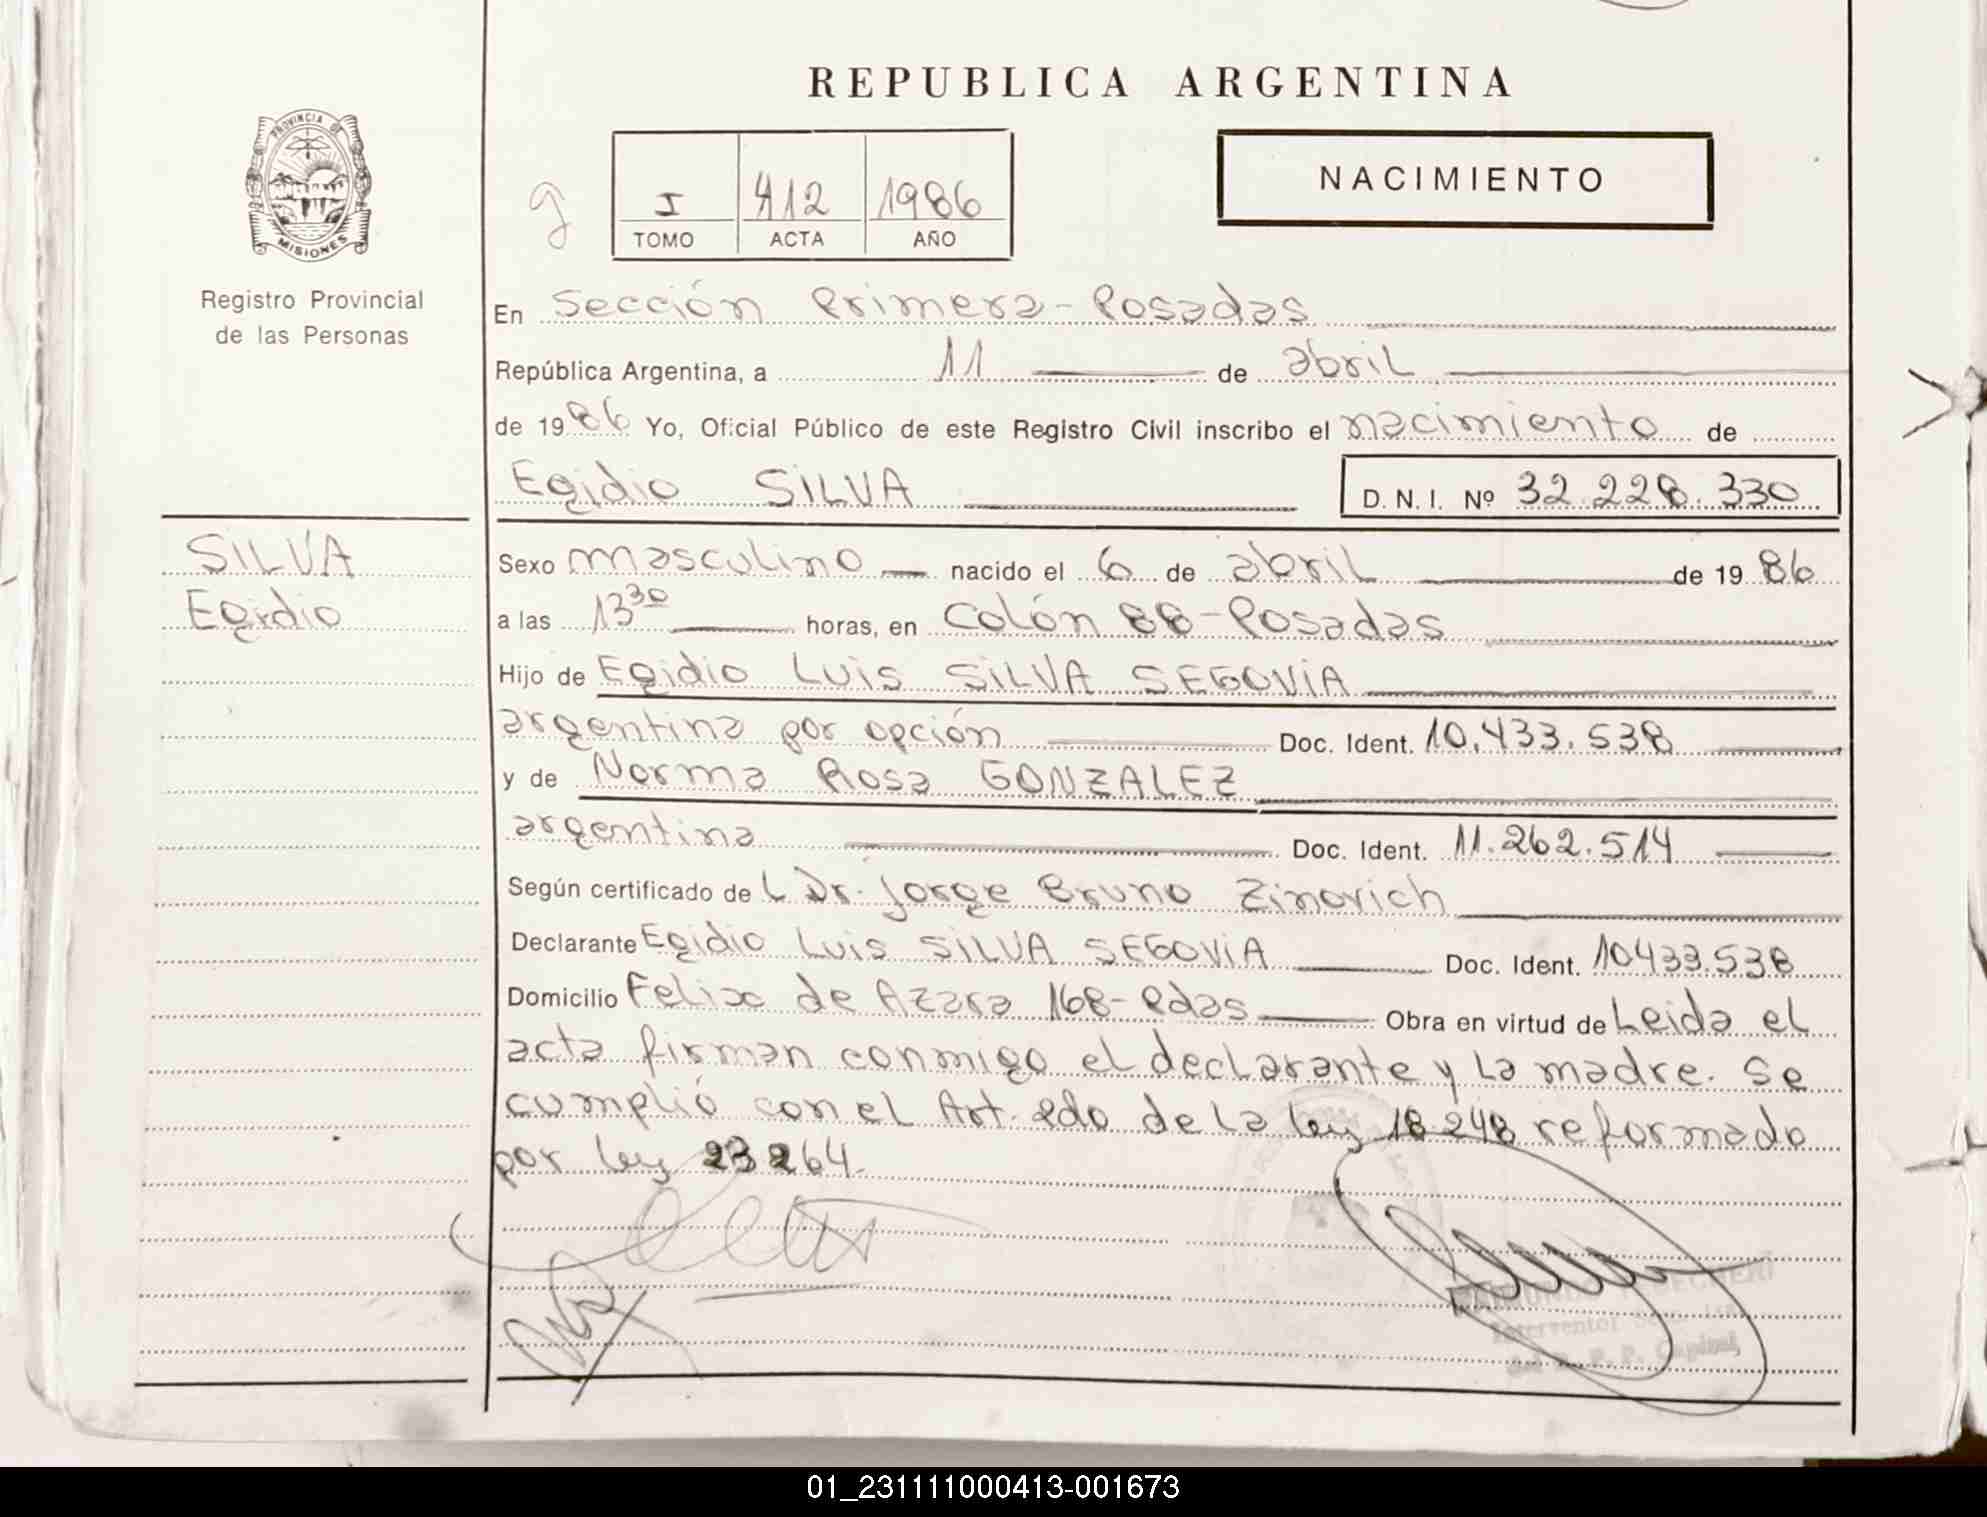 REPUBLICA ARGENTINA
PROVINCIA DE
MISIONES
Registro Provincial
de las Personas
I 412 1986
TOMO ACTA AÑO
NACIMIENTO
En Sección Primera - Posadas
República Argentina, a 11 de abril
de 1986 Yo, Oficial Público de este Registro Civil inscribo el nacimiento de
Egidio SILVA D.N.I. Nº 32.228.330
SILVA
Egidio
Sexo masculino nacido el 6 de abril de 1986
a las 13 30 horas, en Colón 88 - Posadas
Hijo de Egidio Luis SILVA SEGOVIA
argentina por opción Doc. Ident. 10.433.538
y de Norma Rosa GONZALEZ
argentina Doc. Ident. 11.262.514
Según certificado de L Dr. Jorge Bruno Zinovich
Declarante Egidio Luis SILVA SEGOVIA Doc. Ident. 10433.538
Domicilio Felix de Azara 168 - Pdas Obra en virtud de Leida el
acta firman conmigo el declarante y la madre. Se
cumplió con el Art. 2do de la ley 18248 reformado
por ley 23264.
Interventor
Capital
01_231111000413-001673